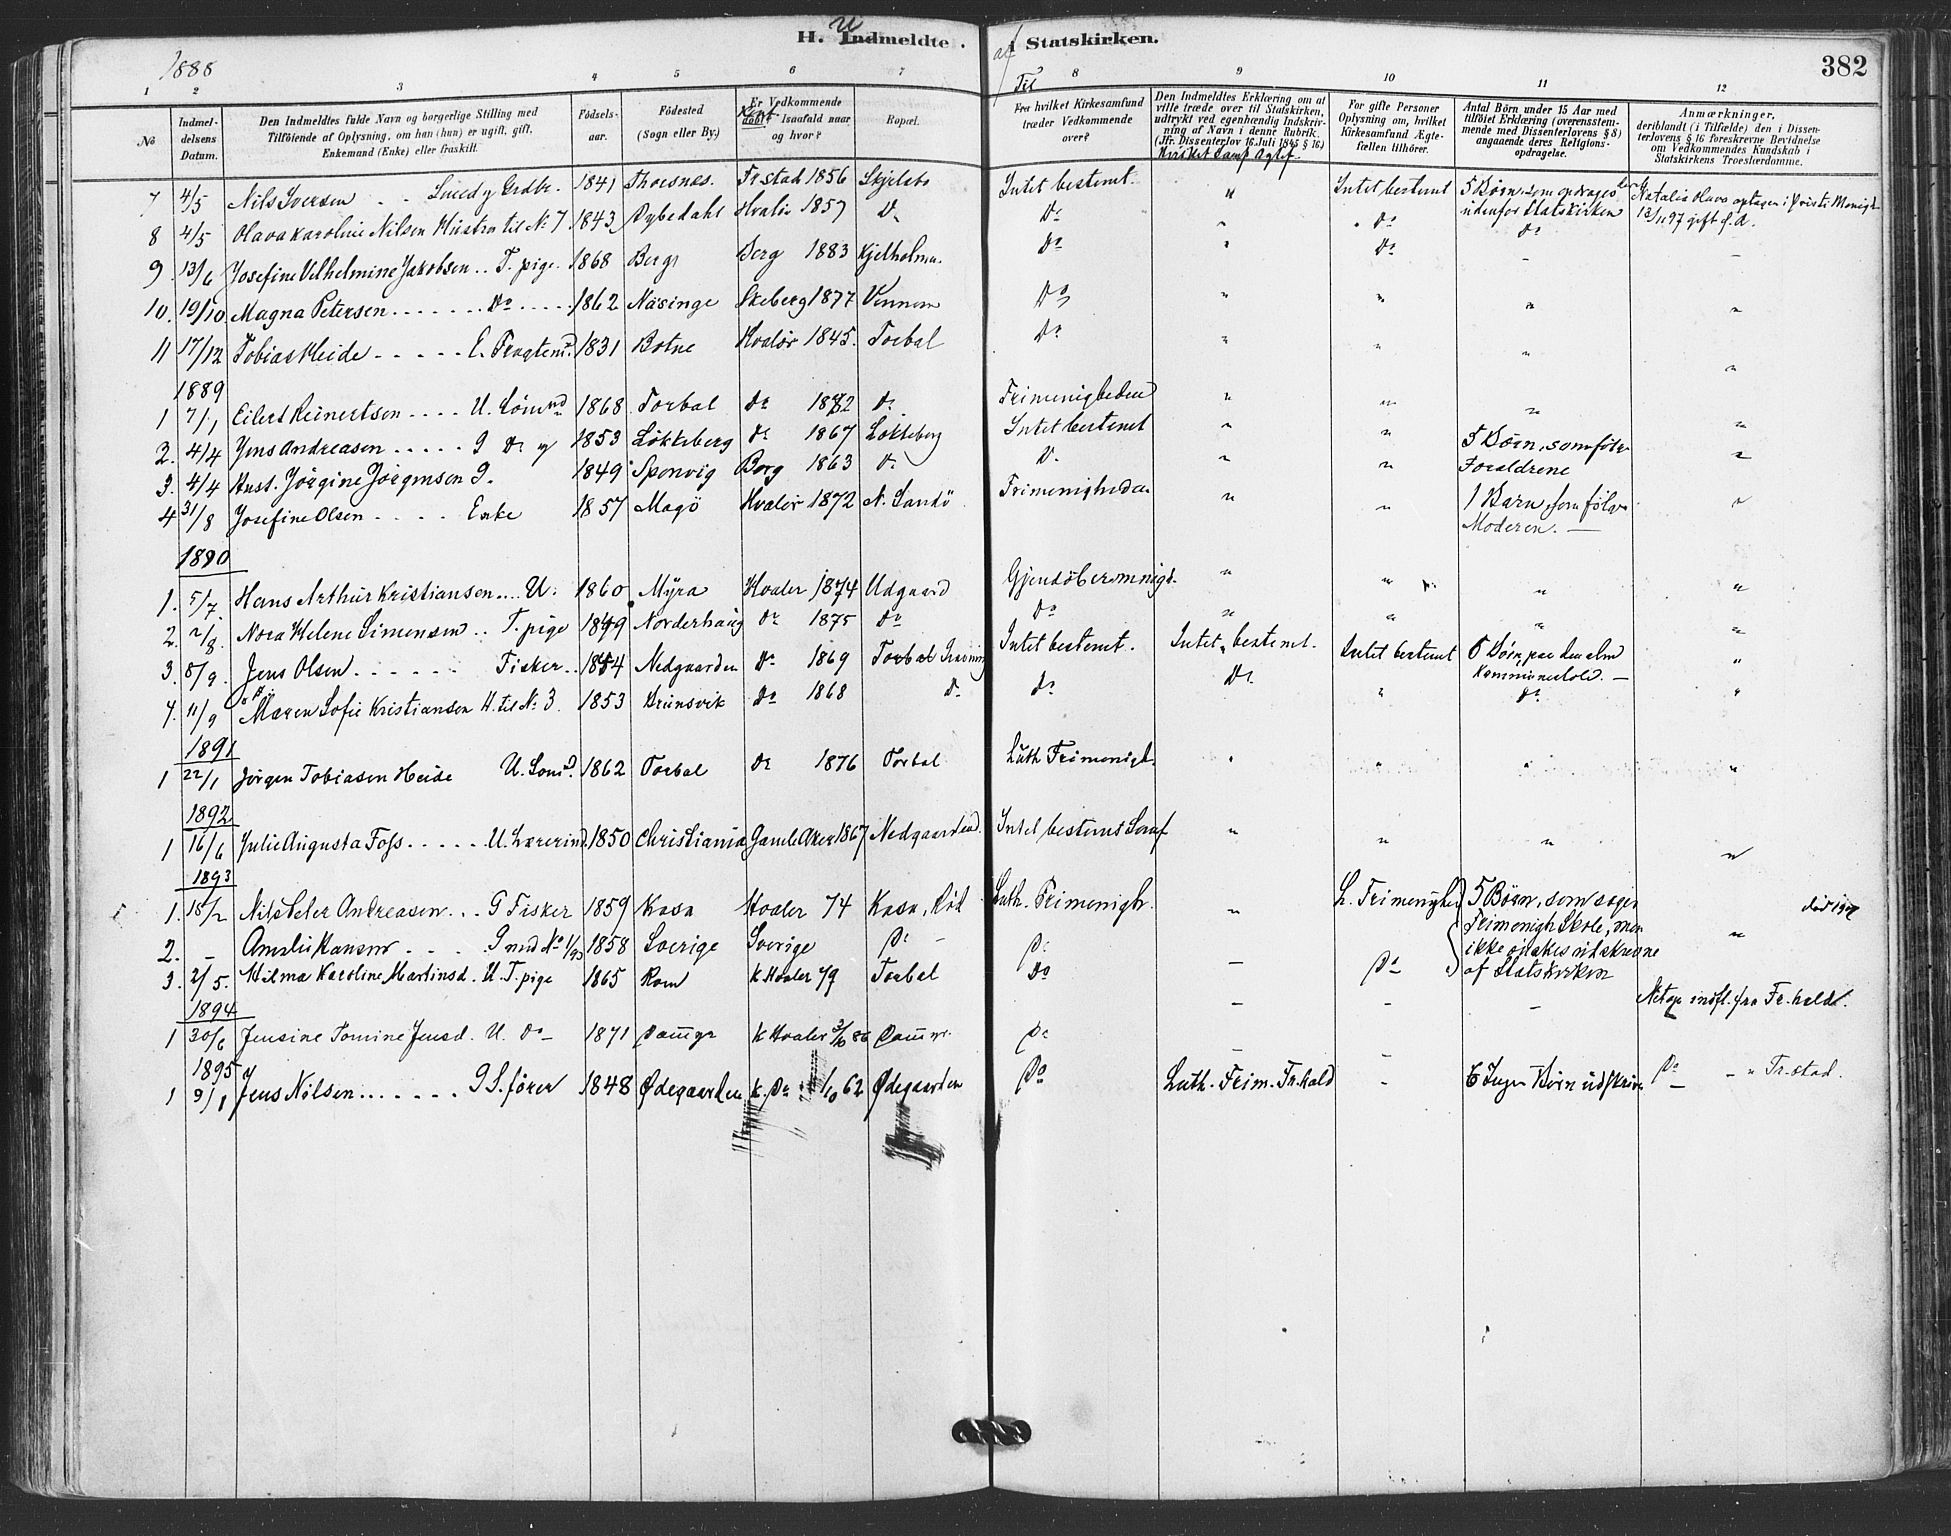 1888
H. Indmeldte.
u
af
i Statskirken.
382
1 2 3 4 5 6 7 8 9 10 11 12
No
Indmeldelsens Datum.
Den Indmeldtes fulde Navn og borgerlige Stilling med
Tilföiende af Oplysning, om han (hun) er ugift, gift,
Enkemand (Enke) eller fraskilt.
Födselsaar.
Födested
(Sogn eller By.)
Er Vedkommende
döbt Konf. Isaafald naar
og hvor?
Bopæl.
Til
Fra hvilket Kirkesamfund
træder Vedkommende
over?
Den Indmeldtes Erklæring om at
ville træde over til Statskirken,
udtrykt ved egenhændig Indskrivning af Navn i denne Rubrik.
(Jfr. Dissenterlov 16 Juli 1845 § 16)
Hvisket Samf Ogtef.
For gifte Personer
Oplysning om, hvilket
Kirkesamfund Ægtefællen tilhörer.
Antal Börn under 15 Aar med
tilföiet Erklæring (overensstemmende med Dissenterlovens § 8)
angaaende deres Religionsopdragelse.
Anmærkninger,
deriblandt (i Tilfælde) den i Dissenterlovens § 16 foreskrevne Bevidnelse
om Vedkommendes Kundskab i
Statskirkens Troeslærdomme.
7 4/5 Nils Iversen - - Smed g 1841 Thorsnes. Frstad 1856 Skjelsbo Intet bestemt. " Intet bestemt 5 Børn, som opdrages udenfor Statskirken Natalia Olava optagen i 13/11 97 gift s. d.
8 4/5 Olava Karoline Nilsen Hustro til No 7. 1843 Dybedahl Hvalør 1857 Do Do " Do Do
9. 13/6 Josefine Vilhelmine Jakobsen .. T. pige. 1868 Berg Berg 1883 Kjelholmen. Do " Do - -
10. 19/10 Magna Petersen - - - - Do - - - 1862 Näsinge Skeberg 1877 Vennem Do " " " "
11 17/12 Tobias Heide - - - - - E. Fragtem. 1831 Botne Hvalør 1845. Torbal Do " " " "
1889
1 7/1 Eilert Reinertsen - - - - U. Sømnd 1868 Torbal Do 1882 Do Frimenigheden " " " "
2. 4/4 Jens Andreasen - - - - - G Do g 1853 Løkkeberg Do 1867 Løkkeberg Intet bestemt " " 5 Børn, som følge Forældrene "
3. 4/4 Hust. Jørgine Jørgensen G. 1849 Sponvig Borg 1863 Do Do " "
4 31/8 Josefine Olsen - - - - Enke 1857 Magö Hvalør 1872 N. Sandö Frimenigheden " " 1 Barn, som følge Moderen. — "
1890
1. 5/7. Hans Arthur Kristiansen.... U. 1860 Myra Hvaler 1874 Udgaard " " " "
2. 2/8. Nora Helene Simensen .. T. pige 1849 Norderhaug Do 1875 Do Do " " " "
3. 8/9. Jens Olsen - - - - - - Fisker.. 1854 Nedgaarden Do 1869 Torbal Intet bestemt. Intet bestemt. Intet bestemt "
4. 11/9 Maren Sofie Kristiansen H. til No 3. 1853 Brunsvik Do 1868 Do Do Do " Do "
1891
1 22/1 Jørgen Tobiasen Heide U. Somd. 1862 Torbal Do 1876 Torbal Luth Frimenigh. " " " "
1892
1 16/6 Julie Augusta Foss - - - - - U. Lærerind. 1850 Christiania Gamle Aker 1867 Nedgaarden Intet bestemt Samf " " " "
1893
1. 18/2 Nils Peter Andreasen... G Fisker 1859 Kasa Hvaler 74 Kasa, Rød Luth. Frimenigh. " L. Frimenighed 5 Børn, som søger Frimenigh Skole, men ikke ønskes udskrevne af Statskirken
2. - Amalie Hansen - - - G med No 1/93 1858 Sverige Sverige Do - Do "
3. 2/5. Hilma Karoline Martinsd. U. T. pige 1865 Rom K Hvaler 79 Torbal Do - Do
1894
1 30/6 Jensine Tomine Jensd. U. Do - 1871 Daugr K Hvaler 86 Daugr. Do - - - Netop indfl. fra Fr.hald.
1895
1 9/1 Jens Nilsen....... G S. fører 1848 Ødegaarden K. Do 1/10 62 Ødegaarden Do Luth. Frim. Fr.hald - Ingen Børn udskrives Do - " Fr.stad.